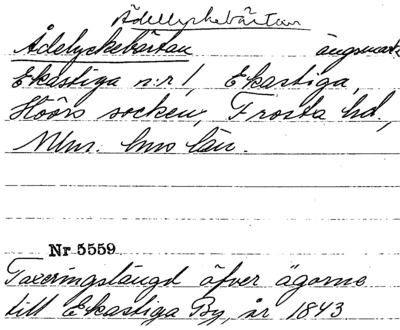 Ådellyckebärtan
Ådelyckebärtan ängsmark
Ekastiga n:r 1, Ekastiga,
Höörs socken, Frosta hd.,
Mlm. hus län.
Nr 5559
Taxeringslängd öfver ägorne
till Ekastiga By, år 1843